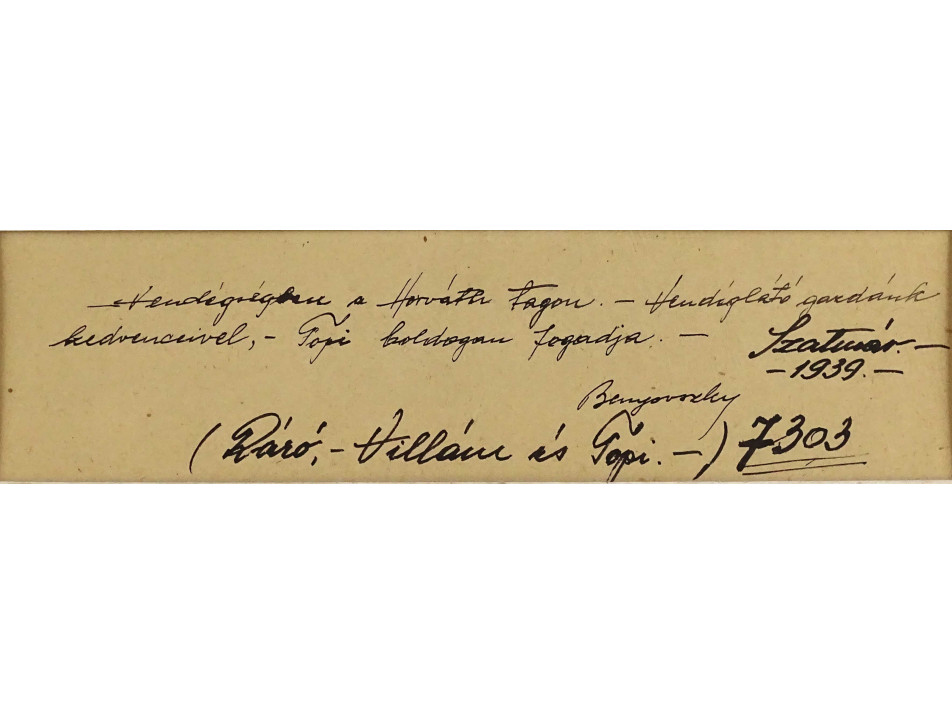 Vendégségben a Horváth tagon. – Vendéglátó gazdánk
kedvenceivel, – Töpi boldogan fogadja. –
Szatmár. –
– 1939. –
Benyovszky
(Ráró, – Villám és Töpi. –) 7303